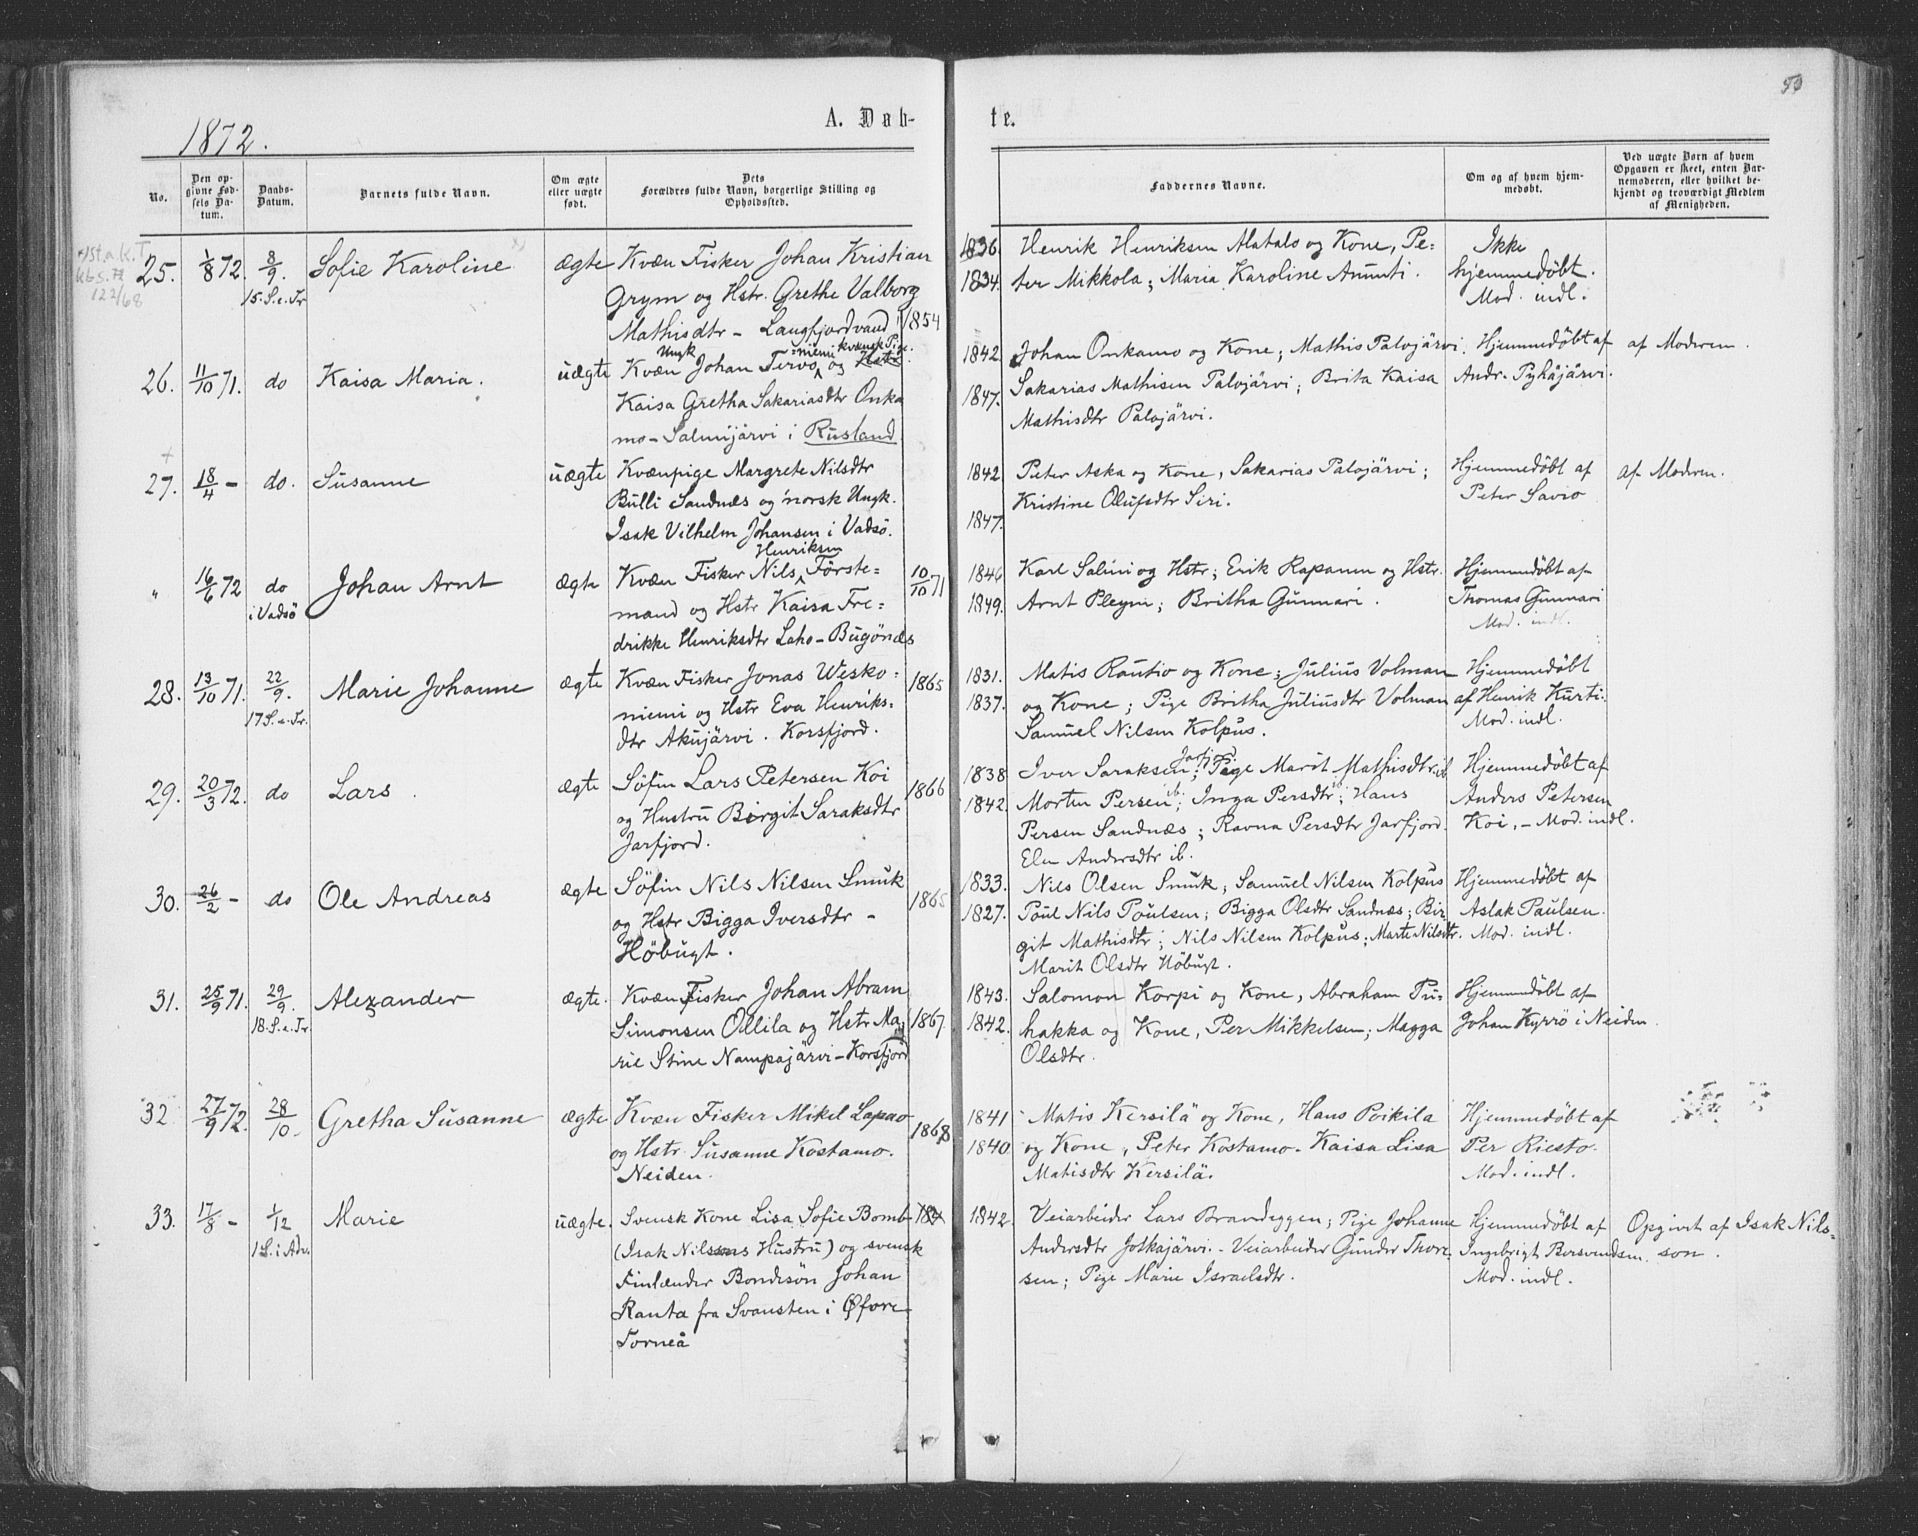 50
1872.
A. Døb-
te.
No.
Den op-
givne Fød-
sels Da-
tum.
Daabs-
Datum.
Barnets fulde Navn.
Om ægte
eller uægte
født.
Dets
Forældres fulde Navn, borgerlige Stilling og
Opholdssted.
Faddernes Navne.
Om og af hvem hjem-
medøbt.
Ved uægte Børn af hvem
Opgaven er skeet, enten Bar-
nemoderen, eller hvilket be-
kjendt og troværdigt Medlem
af Menigheden.
122/68
25. 1/8 72. 8/9. Sofie Karoline ægte Kvæn Fisker Johan Kristian 1836. Henrik Henriksen Alatalo og Kone, Pe= Ikke
15. S. e. Tr. Grym og Hstr. Grethe Valborg 1834. ter Mikkola; Maria Karoline Anunti. hjemmedøbt.
Mathisdtr – Langfjordvand 1854 Mod. indl.
26. 11/10 71. do Kaisa Maria. uægte Kvæn Ungk Johan Tervo=niemi og kvænsk Pige. Hstr. 1842. Johan Onkamo og Kone; Mathis Palojärvi. Hjemmedøbt af af Moderen.
Kaisa Gretha Sakariasdtr Onka 1847. Sakarias Mathisen Palojärvi; Brita Kaisa Andr. Pyhäjärvi.
mo – Salmijärvi i Rusland Mathisdtr Palojärvi.
27. 18/4 – do. Susanne uægte Kvænpige Margrete Nilsdtr 1842 Peter Aska og Kone, Sakarias Palojärvi; Hjemmedøbt af af Moderen.
Bulli Sandnæs og norsk Ungk. Kristine Olufsdtr Siri. Peter Savio
Isak Vilhelm Johansen i Vadsö. 1847.
" 16/6 72 do Johan Arnt ægte Kvæn Fisker Nils Henriksen Förste= 10/10 71 1846 Karl Salmi og Hstr; Erik Rapanen og Hstr. Hjemmedøbt af
i Vadsö mand og Hstr Kaisa Fre= 1849. Arnt Pleym; Britha Gunnari. Thomas Gunnari
drikke Henriksdtr Laho – Bugönæs Mod. indl.
28. 13/10 71. 22/9. Marie Johanne ægte Kvæn Fisker Jonas Wesko= 1865 1831. Matis Rautio og Kone; Julius Volman Hjemmedøbt
17 S. e. Tr. niemi og Hstr Eva Henriks= 1837. og Kone; Pige Britha Juliusdtr Volman af Henrik Kurti.
dtr Akujärvi. Korsfjord. Samuel Nilsen Kolpus. Mod. indl.
29. 20/3 72. do Lars. ægte Söfin Lars Petersen Koi 1866 1838 Iver Saraksen Jarfj.; Pige Marit Mathisdtr ib. Hjemmedøbt af
og Hustru Birgit Saraksdtr 1842. Morten Persen ib.; Inga Persdtr ib; Hans Anders Petersen
Jarfjord. Persen Sandnæs; Ravna Persdtr Jarfjord. Koi. – Mod. indl.
Elen Andersdtr ib.
30. 26/2 – do Ole Andreas ægte Söfin Nils Nilsen Smuk 1865 1833. Nils Olsen Smuk; Samuel Nilsen Kolpus Hjemmedøbt af
og Hstr Bigga Iversdtr – 1827. Poul Nils Poulsen; Bigga Olsdtr Sandnæs; Bir- Aslak Paulsen.
Höbugt. git Mathisdtr; Nils Nilsen Kolpus; Marte Nilsdtr. Mod. indl.
Marit Olsdtr Höbugt.
31. 25/9 71. 29/9. Alexander ægte. Kvæn Fisker Johan Abram 1843. Salomon Korpi og Kone, Abraham Pu= Hjemmedøbt af
18. S. e. Tr. Simonsen Ollila og Hstr Ma= 1867. 1842. hakka og Kone, Per Mikkelsen; Magga Johan Kyrrö i Neiden
rie Stine Nampajärvi – Korsfjord Olsdtr.
32 27/9 72. 28/10. Gretha Susanne ægte Kvæn Fisker Mikel Lapao 1868 1841 Matis Kersilä og Kone, Hans Poikila Hjemmedøbt af
og Hstr. Susanne Kostamo. 1840 og Kone, Peter Kostamo. Kaisa Lisa Per Riesto.
Neiden. Matisdtr Kersilä. Mod. indl.
33. 17/8 – 1/12 Marie uægte. Svensk Kone Lisa Sofie Bomb- 1842 Veiarbeider Lars Brandeggen; Pige Johanne Hjemmedøbt af Opgivet af Isak Nils=
1 S. i Adv. (Isak Nilssons Hustru) og svensk Andersdtr Jolkajärvi. – Veiarbeider Gunder Thor= Ingebrigt Bersvendsen. son.
Finlænder Bondesön Johan sen; Pige Marie Israelsdtr. Mod. indl.
Ranta fra Svansten i Øfvre
Torneå